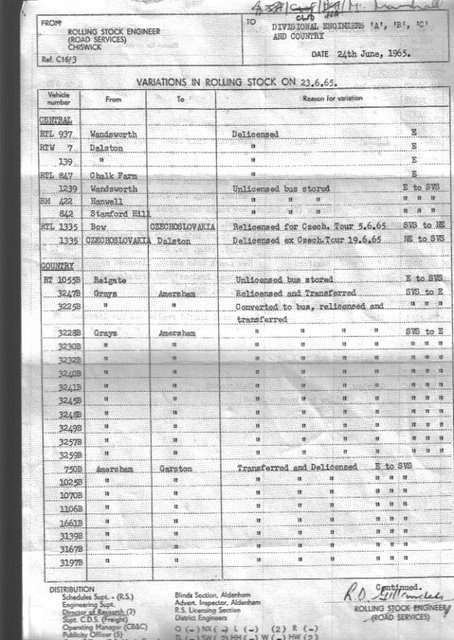 M. Marshall
FROM
ROLLING STOCK ENGINEER
(ROAD SERVICES)
CHISWICK
Ref. C16/3
TO
DIVISIONAL ENGINEERS 'A', 'B', 'C'
AND COUNTRY
DATE 24th June, 1965.
VARIATIONS IN ROLLING STOCK ON 23.6.65.
Vehicle number From To Reason for variation
CENTRAL
RTL 937 Wandsworth Delicensed E
RTW 7 Dalston " E
139 " " E
RTL 847 Chalk Farm " E
1239 Wandsworth Unlicensed bus stored E to SVS
RM 422 Hanwell " " " " " "
842 Stamford Hill " " " " " "
RTL 1335 Bow CZECHOSLOVAKIA Relicensed for Czech. Tour 5.6.65 SVS to NE
1335 CZECHOSLOVAKIA Dalston Delicensed ex Czech.Tour 19.6.65 NE to SVS
COUNTRY
RT 1055B Reigate Unlicensed bus stored E to SVS
3247B Grays Amersham Relicensed and Transferred SVS to E
3225B " " Converted to bus, relicensed and transferred " " "
3228B Grays Amersham " " " " SVS to E
3230B " " " " " " " " "
3232B " " " " " " " " "
3240B " " " " " " " " "
3241B " " " " " " " " "
3245B " " " " " " " " "
3248B " " " " " " " " "
3249B " " " " " " " " "
3257B " " " " " " " " "
3259B " " " " " " " " "
750B Amersham Garston Transferred and Delicensed E to SVS
1025B " " " " " " " "
1070B " " " " " " " "
1106B " " " " " " " "
1661B " " " " " " " "
3139B " " " " " " " "
3167B " " " " " " " "
3197B " " " " " " " "
Continued.
DISTRIBUTION
Schedules Supt. - (R.S.)
Engineering Supt.
Director of Research (2)
Supt. C.D.S. (Freight)
Operating Manager (CB&C)
Publicity Officer (5)
Blinds Section, Aldenham
Advert. Inspector, Aldenham
R.S. Licensing Section
District Engineers
ROLLING STOCK ENGINEER
(ROAD SERVICES)